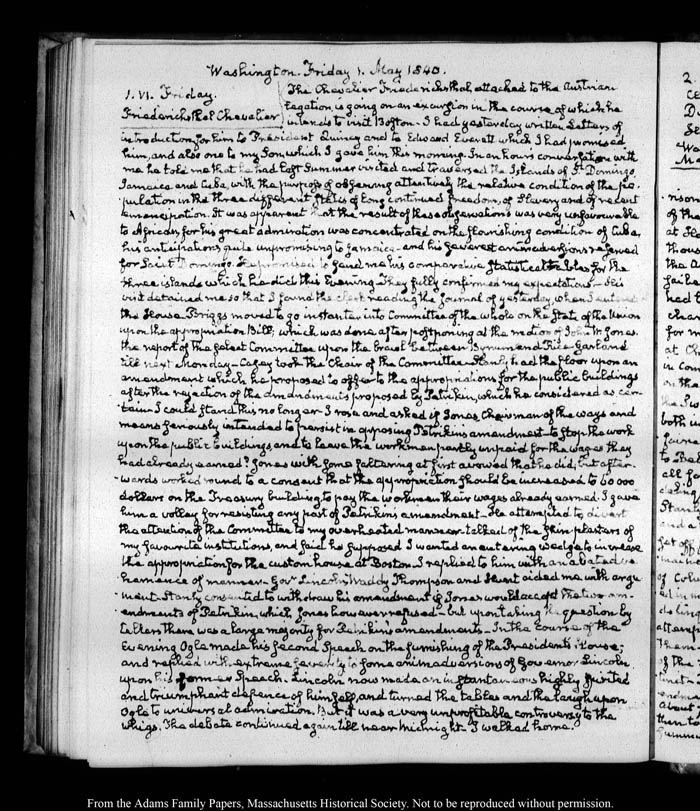 Washington. Friday 1. May 1840.
1. VI. Friday.
Friederichsthal Chevalier
The Chevalier Friederichsthal, attached to the Austrian
Legation, is going on an excursion in the course of which he
intends to visit Boston. I had yesterday written Letters of
introduction for him to President Quincy and to Edward Everett which I had promised
him, and also one to my Son, which I gave him this morning. In an hours conversation with
me he told me that he had last Summer visited and traversed the Islands of St. Domingo,
Jamaica and Cuba, with the purpose of observing attentively the relative condition of the po-
pulation in the three different States of long continued freedom, of Slavery and of recent
emancipation. It was apparent that the result of these observations was very unfavourable
to African, for his great admiration was concentrated on the flourishing condition of Cuba,
his anticipations quite unpromising to Jamaica— and his severest animadversions reserved
for Saint Domingo. He promised to send me his comparative statistical tables for the
three islands which he did this Evening. They fully confirmed my expectations— His
visit detained me so that I found the Clerk reading the Journal of yesterday, when I entered
the House. Briggs moved to go instanter into Committee of the whole on the State of the Union
upon the appropriation Bill; which was done after postponing at the motion of John W. Jones
the report of the select Committee upon the brawl between Bynum and Rice Garland
till next Monday— Casey took the Chair of the Committee— Stanly had the floor upon an
amendment which he proposed to offer to the appropriations for the public buildings
after the rejection of the amendments proposed by Petrikin, which he considered as cer-
tain— I could stand this no longer— I rose and asked if Jones, Chairman of the ways and
means seriously intended to persist in opposing Petrikin's amendment— to stop the work
upon the public Buildings, and to leave the workmen partly unpaid for the wages they
had already earned? Jones with some faltering at first avowed that he did, but after-
wards worked round to a consent that the appropriation should be increased to 60 000
dollars on the Treasury building, to pay the workmen their wages already earned. I gave
him a volley for resisting any part of Petrikin's amendment— He attempted to divert
the attention of the Committee to my overheated manner— talked of the skin plasters of
my favourite institutions, and said he supposed I wanted an entering wedge to increase
the appropriation for the custom house at Boston. I replied to him with unabated ve-
hemence of manner— Govr. Lincoln, Waddy Thompson and Hunt aided me with argu-
ment. Stanly consented to withdraw his amendment if Jones would accept the two am-
endments of Petrikin, which Jones however refused— but upon taking the question by
tellers there was a large majority for Petrikin's amendments— In the course of the
Evening Ogle made his second Speech on the furnishing of the President's House;
and replied with extreme severity to some animadversions of Governor Lincoln
upon his former Speech. Lincoln now made an instantaneous highly spirited
and triumphant defence of himself, and turned the tables and the laugh upon
Ogle to universal admiration. But it was a very unprofitable controversy to the
whigs. The debate continued again till near midnight— I walked home.
2.
From the Adams Family Papers, Massachusetts Historical Society. Not to be reproduced without permission.